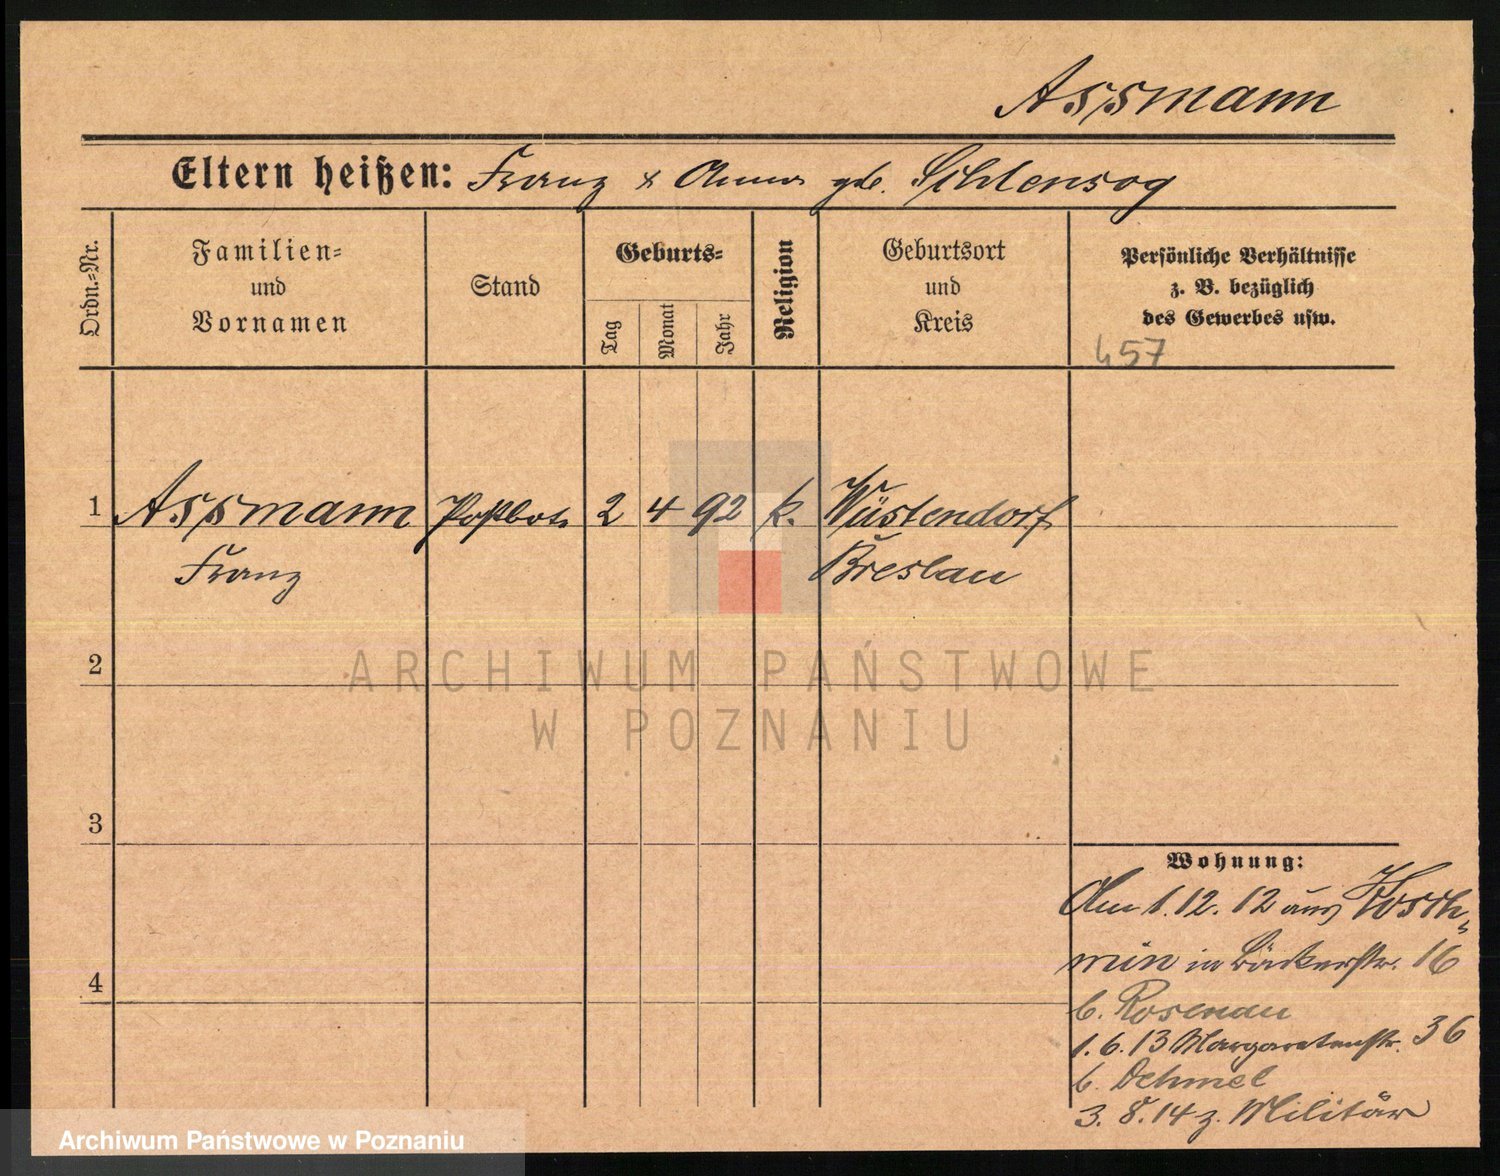 Assmann
Eltern heißen: Franz & Anna gb. Schlensog
Ordn.-Nr.
Familien- und Vornamen
Stand
Geburts-
Tag
Monat
Jahr
Religion
Geburtsort und Kreis
Persönliche Verhältnisse
z. B. bezüglich
des Gewerbes usw.
457
1 Assmann Postbote 2 4 92 k. Wüstendorf
Franz Breslau
2
3
4
Wohnung:
Am 1.12.12 aus Kosch-
min in Bäckerstr. 16
b. Rosenau
1.6.13 Margaretenstr. 36
b. Dehmel
3.8.14 z. Militär
ARCHIWUM PAŃSTWOWE
W POZNANIU
Archiwum Państwowe w Poznaniu